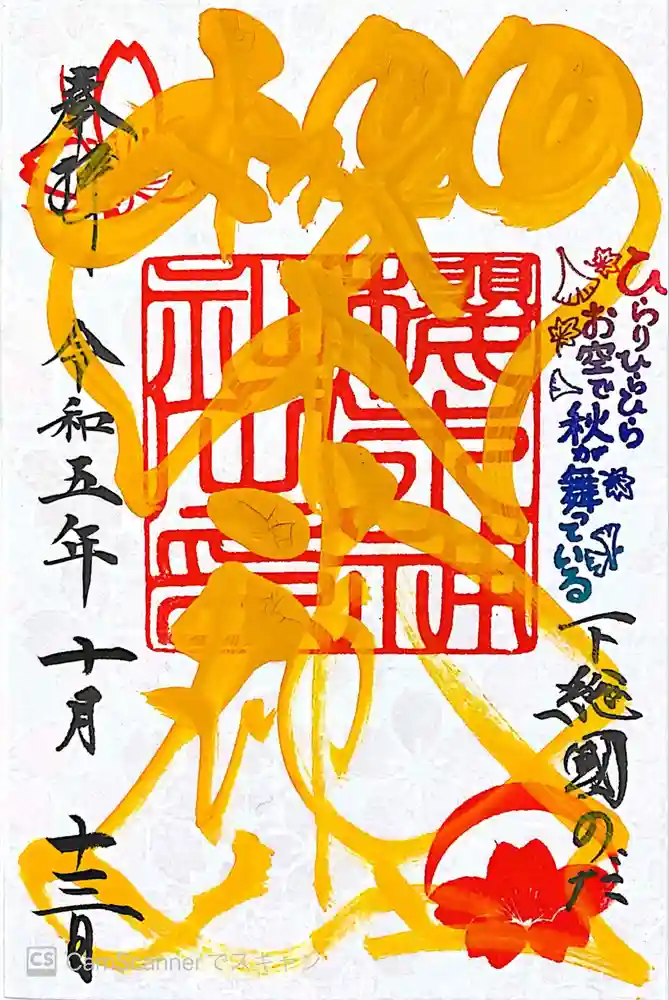 ひらりひらひら
お空で
秋が舞っている
下総國のだ
櫻木神社
奉拝 令和五年 十月 十三日
CS CamScanner でスキャン